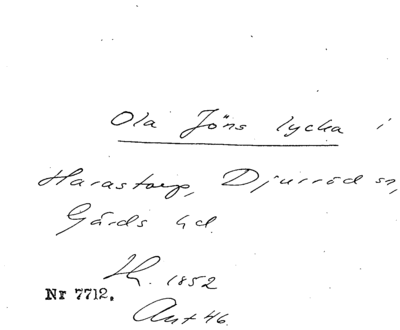 Ola Jöns lycka i
Harastorp, Djurröd sn,
Gärds hd.
Th. 1852
Nr 7712.
Ant 46.